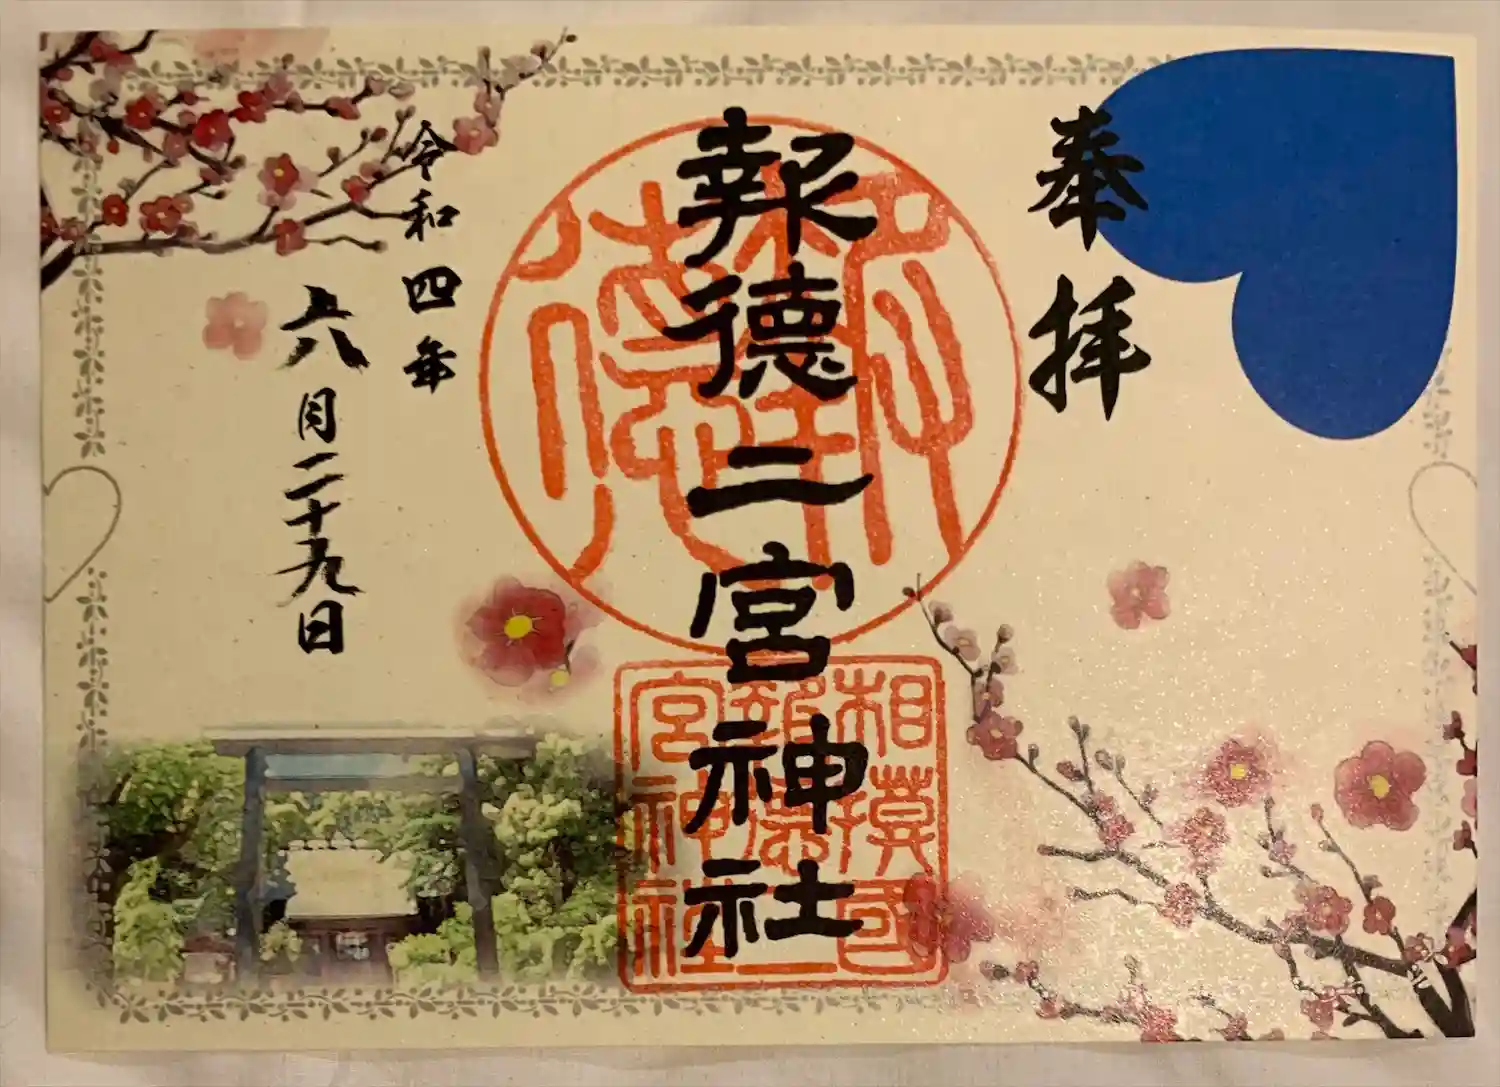 奉拝
報徳二宮神社
報徳
相模国
報徳二
宮神社
令和四年
六月二十九日